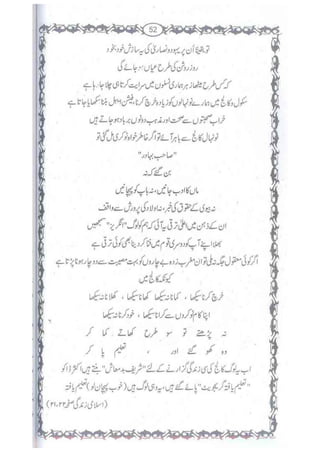 52
تو یقیناً ان پر یہود و نصاریٰ کی یہ سازش خود بخود
روز روشن کی طرح عیاں ہو جائے گی
کہ کس طرح میٹھا زہر ہماری نسلوں میں سرایت کرتا ہی چلا جا رہا ہے
سکول و کالج میں ہمارے نونہالوں کو زیادہ خرچ کرنا، فیشن ایبل بننا سکھایا جاتا ہے
خراب صحبتوں سے صحت اور مذہب دونوں برباد ہو جاتے ہیں
نونہال کالج سے باہر آئے تو اگر خاطر خواہ نوکری مل گئی تو
"صاحب بہادر"
بن گئے کہ نہ
ماں کا ادب جانیں، نہ باپ کو پہچانیں
نہ بیوی کے حقوق کی خبر، نہ اولاد کی پرورش سے واقف
ان کے ذہن میں اعلیٰ ترقی یہ آئی کہ ہم کو لوگ "انگریز" سمجھیں
بھلا اپنے آپ کو دوسری قوم میں فنا کر دینا بھی کوئی ترقی ہے
اگر کوئی معقول جگہ نہ ملی تو ان بے چاروں کو بہت مصیبت سے دوچار ہونا پڑتا ہے
کیونکہ کالج میں
خرچ کرنا سیکھا ، کمانا نہ سیکھا کھانا سیکھا ، کھلانا نہ سیکھا
اپنا کام نوکروں سے کرانا سیکھا ، خود کرنا نہ سیکھا
نہ پڑھتے تو سو طرح کھاتے کما کر
وہ کھو گئے اور ، تعلیم پا کر
اب یہ لوگ کالج کی سی زندگی گزارنے کے لئے "شریف بدمعاش" بنتے ہیں اکثر ڈاکو
"تعلیم یافتہ گریجویٹ" پائے گئے ہیں، یہ وہی لوگ ہیں (خوب پہچان لو) تعلیم یافتہ
(اسلامی زندگی صفحہ ۲۲-۲۱)